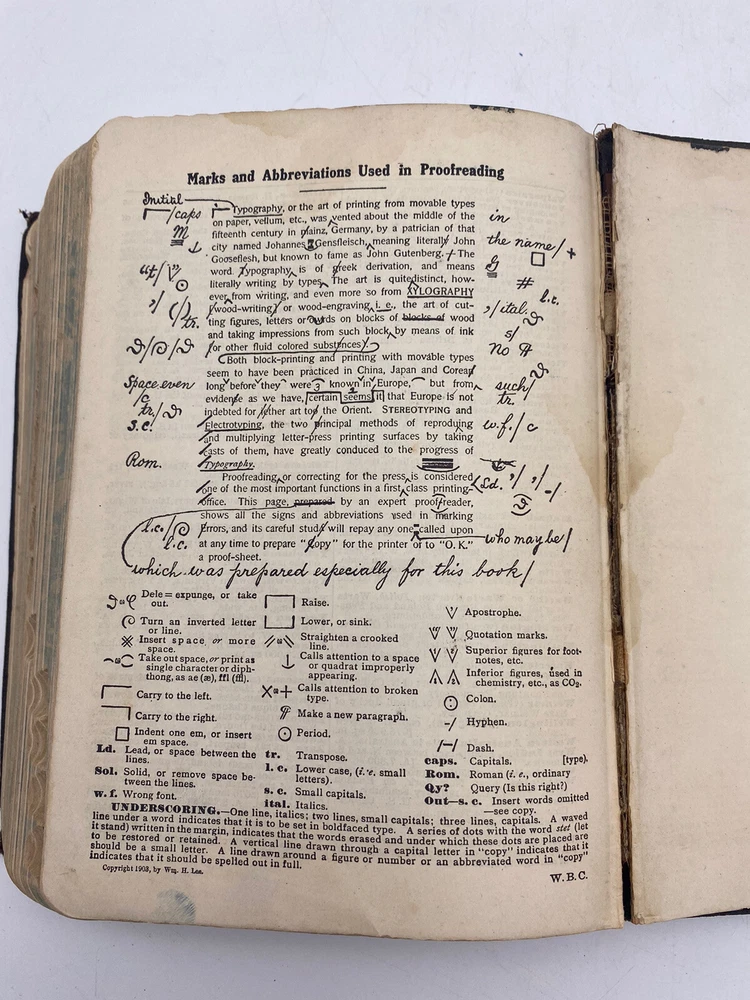 Marks and Abbreviations Used in Proofreading
Initial
/caps
Typography, or the art of printing from movable types
in
on paper, vellum, etc., was vented about the middle of the
M
fifteenth century in mainz, Germany, by a patrician of that
the name/ +
city named Johannes Gensfleisch, meaning literally John
Gooseflesh, but known to fame as John Gutenberg. + The
word Typography is of greek derivation, and means
#
literally writing by types. The art is quitedistinct, how-
l.c.
ever from writing, and even more so from XYLOGRAPHY
,/ital.
(wood-writing) or wood-engraving i. e., the art of cut-
tr.
ting figures, letters or words on blocks of blocks of wood
s/
and taking impressions from such block by means of ink
no ¶
or other fluid colored substances.
Both block-printing and printing with movable types
seem to have been practiced in China, Japan and Corea
Space even
long before they were 3 known in Europe, but from
such/
/c
evidence as we have, certain seems it that Europe is not
tr.
tr./
indebted for either art to the Orient. STEREOTYPING and
s.c.
Electrotyping, the two principal methods of reproduing
w.f./ c
and multiplying letter-press printing surfaces by taking
casts of them, have greatly conduced to the progress of
Rom.
Typography.
Proofreading or correcting for the press is considered
Ld.
one of the most important functions in a first class printing-
office. This page, prepared by an expert proof-reader,
shows all the signs and abbreviations used in marking
l.c./
Errors, and its careful study will repay any one called upon
l.c.
at any time to prepare "Copy" for the printer or to "O. K."
who may be/
a proof-sheet.
which was prepared especially for this book/
Dele = expunge, or take
out.
Turn an inverted letter
or line.
Insert space or more
space.
Take out space, or print as
single character or diph-
thong, as ae (æ), ffl (ffl).
Carry to the left.
Carry to the right.
Indent one em, or insert
em space.
Ld. Lead, or space between the
lines.
Sol. Solid, or remove space be-
tween the lines.
w. f. Wrong font.
Raise.
Lower, or sink.
Straighten a crooked
line.
Calls attention to a space
or quadrat improperly
appearing.
X or + Calls attention to broken
type.
¶ Make a new paragraph.
Period.
tr. Transpose.
l. c. Lower case, (i.e. small
letters).
s. c. Small capitals.
ital. Italics.
Apostrophe.
Quotation marks.
Superior figures for foot-
notes, etc.
Inferior figures, used in
chemistry, etc., as CO₂.
Colon.
-/ Hyphen.
/—/ Dash.
caps. Capitals. [type).
Rom. Roman (i. e., ordinary
Qy? Query (Is this right?)
Out—s. c. Insert words omitted
—see copy.
UNDERSCORING.—One line, italics; two lines, small capitals; three lines, capitals. A waved
line under a word indicates that it is to be set in boldfaced type. A series of dots with the word stet (let
it stand) written in the margin, indicates that the words erased and under which these dots are placed are
to be restored or retained. A vertical line drawn through a capital letter in "copy" indicates that it
should be a small letter. A line drawn around a figure or number or an abbreviated word in "copy"
indicates that it should be spelled out in full.
Copyright 1903, by Wm. H. Lee.
W.B.C.